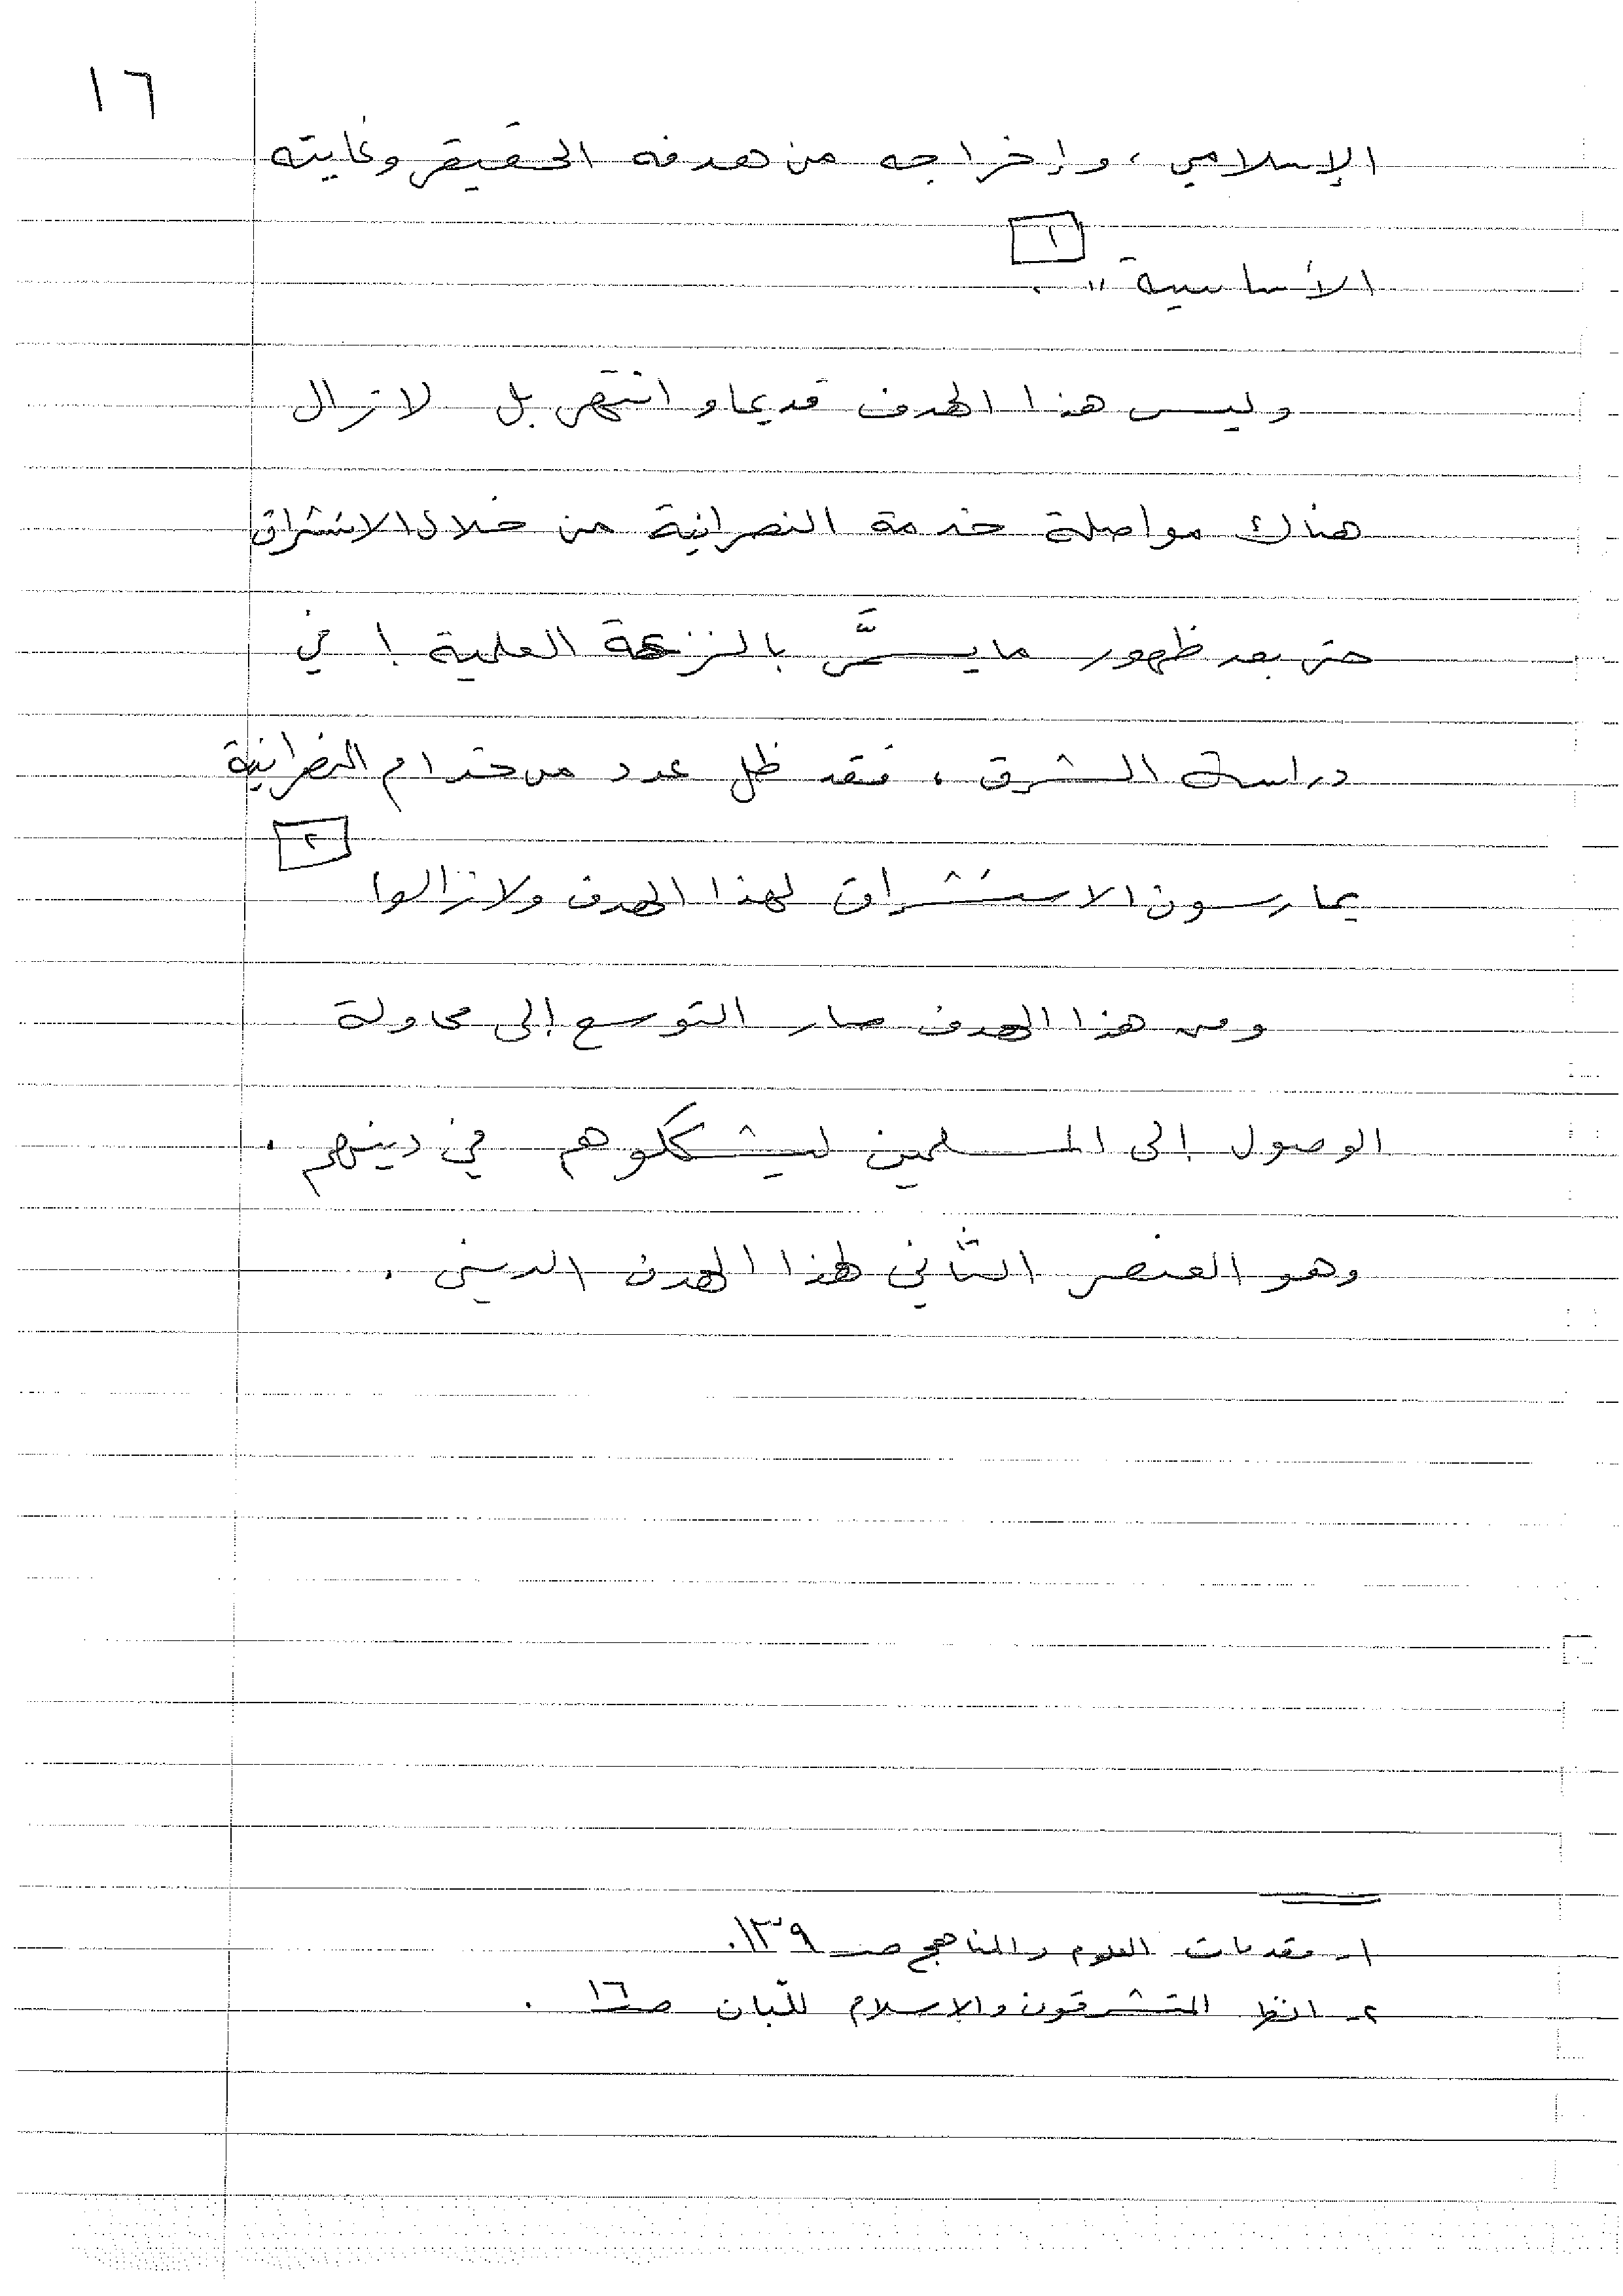 ١٦
الإسلامي، وإخراجه من هدفه الحقيقي وغايته
الأساسية". [١]
وليس هذا الهدف قديما وانتهى بل لا تزال
هناك مواصلة خدمة النصرانية من خلال الاستشراق
حتى بعد ظهور ما يسمَّى بالنزعة العلمية! في
دراسة الشرق، فقد ظل عدد من خدام النصرانية
يمارسون الاستشراق لهذا الهدف ولا تزالوا [٢]
ومن هذا الهدف صار التوسع إلى محاولة
الوصول إلى المسلمين ليشككوهم في دينهم.
وهو العنصر الثاني لهذا الهدف الديني.
١- مقدمات العلوم والمناهج صـ ١٣٩.
٢- انظر المستشرقون والإسلام للّبان صـ ١٦.